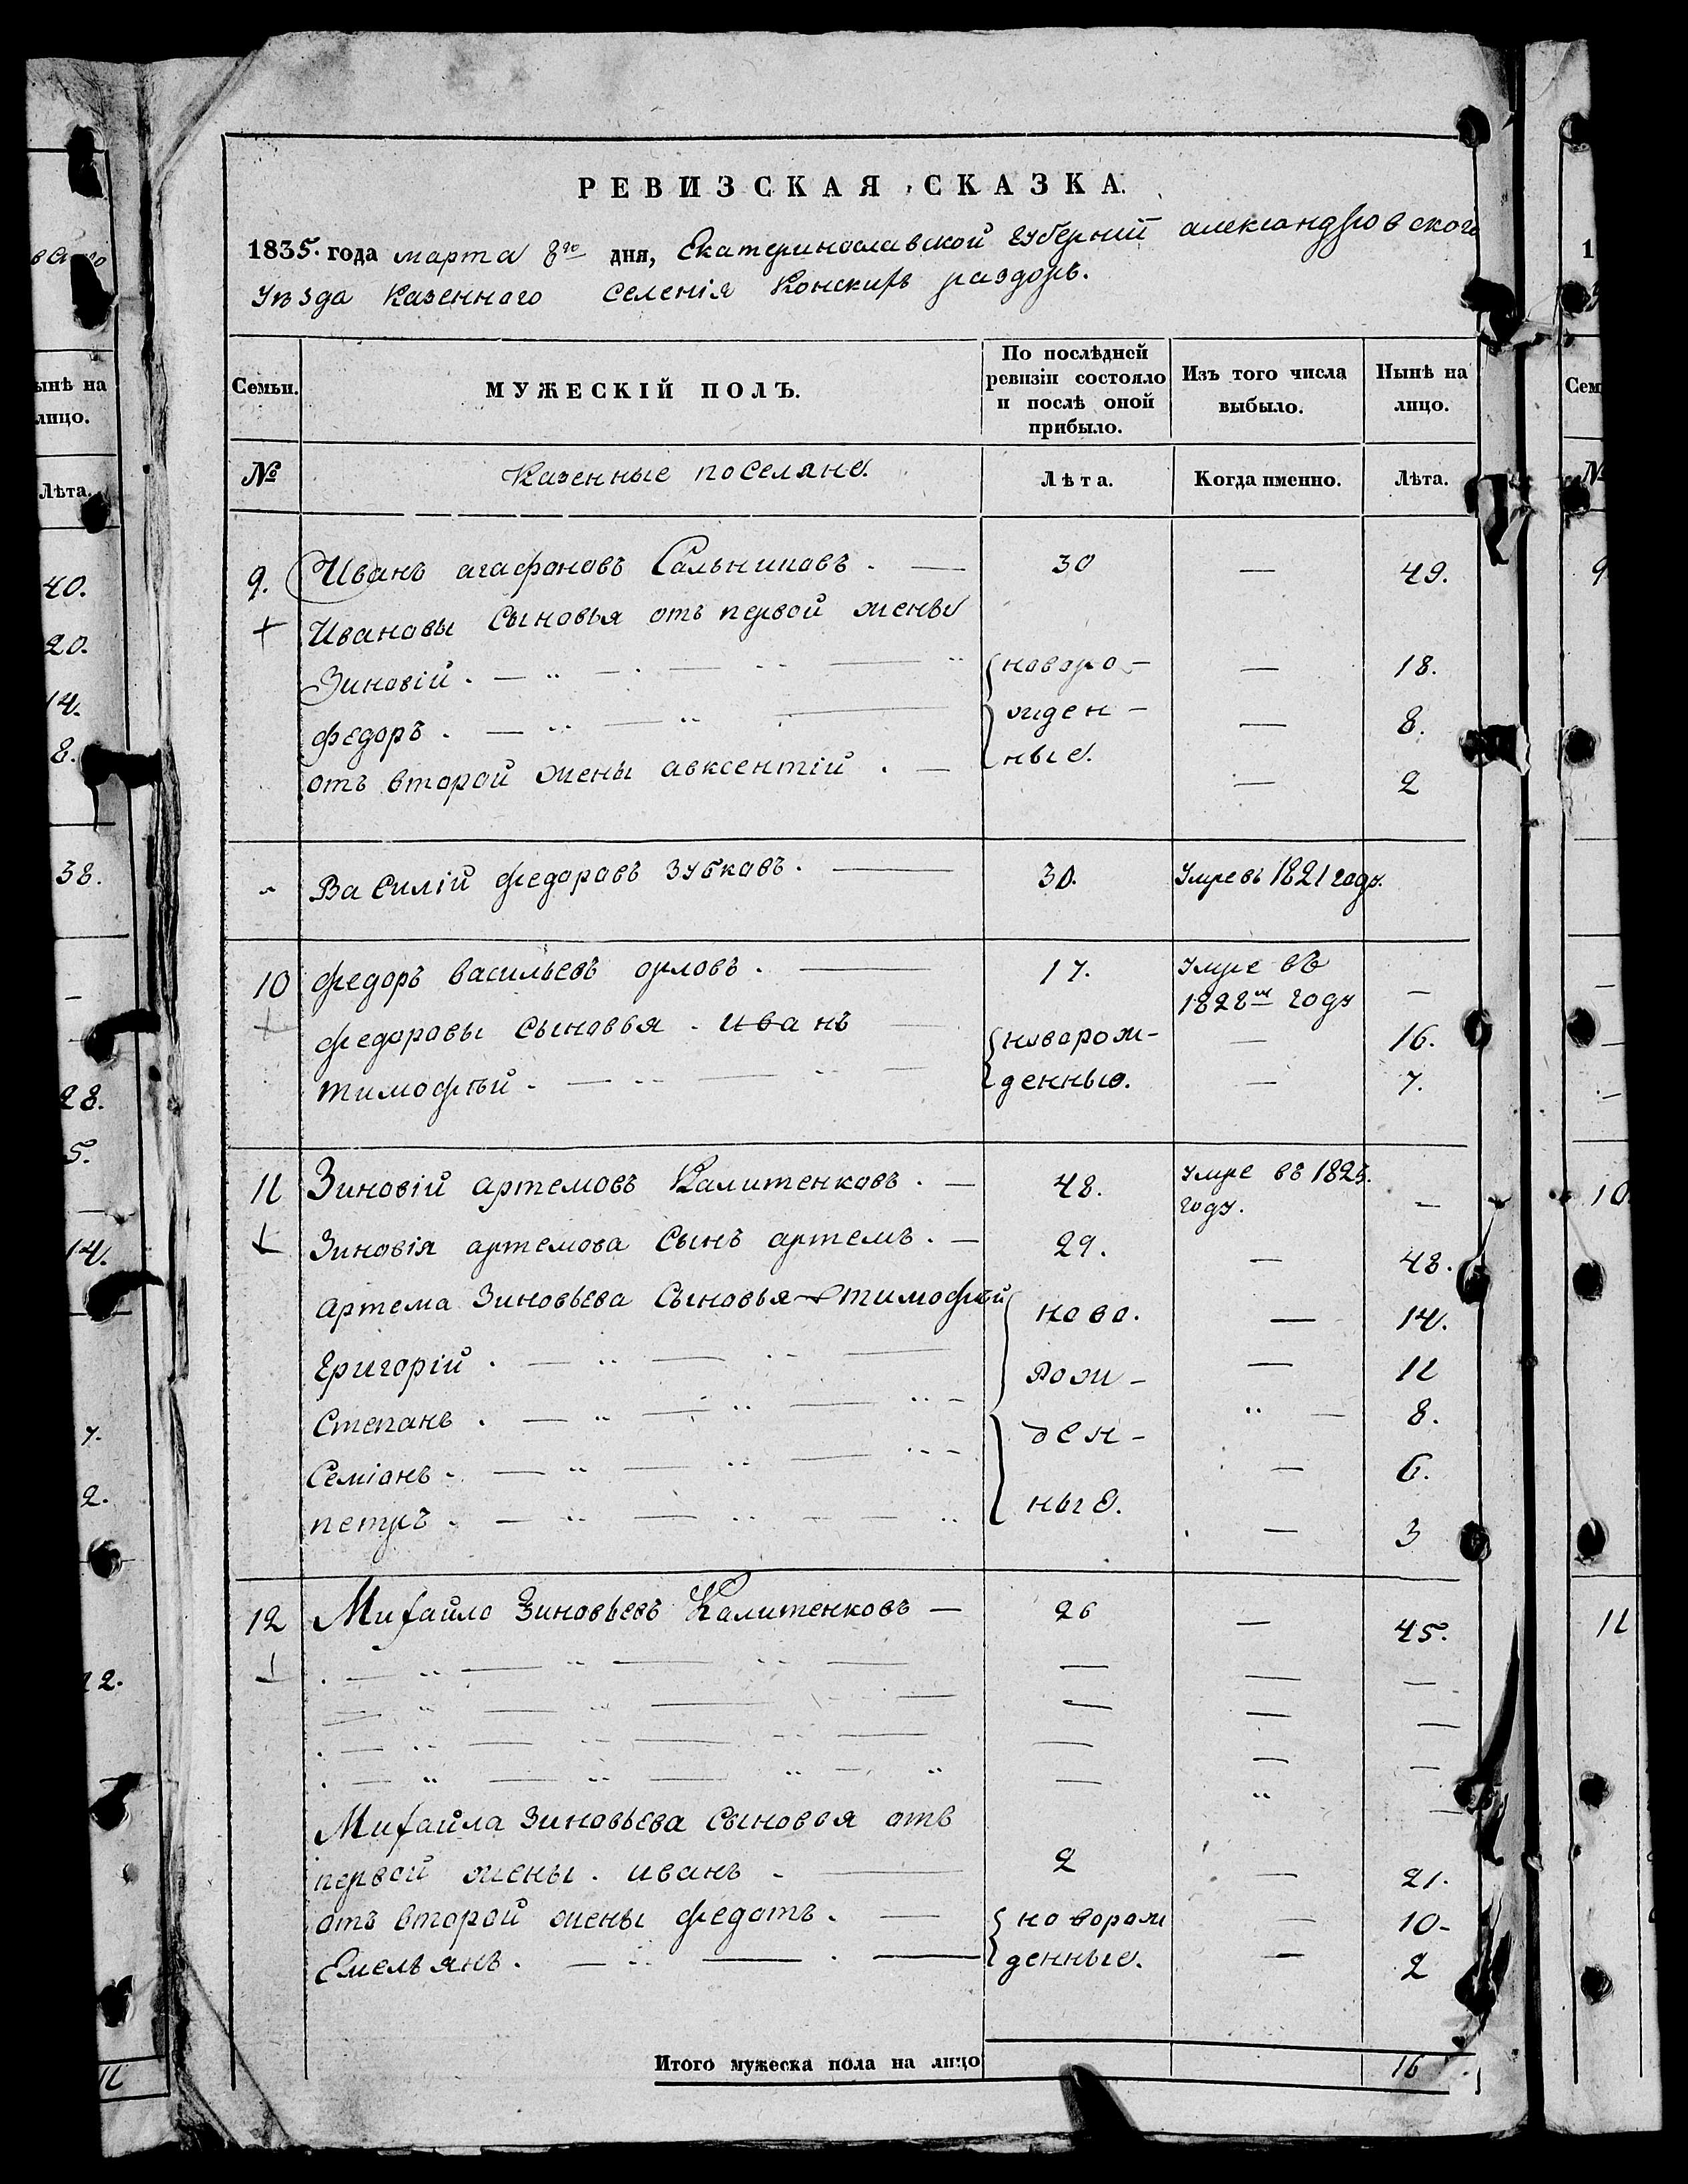 РЕВИЗСКАЯ СКАЗКА.
1835. года марта 8го дня, Екатеринославской губерніи александровского
Уѣзда Казенного селенія Конскихъ раздоръ.
Семьи.
МУЖЕСКІЙ ПОЛЪ.
По послѣдней ревизіи состояло и послѣ оной прибыло.
Изъ того числа выбыло.
Нынѣ на лицо.
№
Казенные поселяне.
Лѣта.
Когда именно.
Лѣта.
9. Иванъ агафоновъ Сальниковъ. — 30 — 49.
+ Ивановы Сыновья отъ первой жены
Зиновій. — новоро- — 18.
федоръ. — жден- — 8.
отъ второй жены авксентій. — ные. — 2
Василій федоровъ Зубковъ. — 30. Умре въ 1821 году.
10 федоръ васильевъ орловъ. — 17. Умре въ 1828м году —
+ федоровы сыновья. иванъ — новорож- — 16.
тимофѣй. — денные. — 7.
11 Зиновій артемовъ Калитенковъ. — 48. Умре въ 1825. году. —
+ Зиновія артемова Сынъ артемъ. — 29. — 48.
артема Зиновьева Сыновья тимофѣй ново. — 14.
Григорій. — рож- — 11
Степанъ. — ден- — 8.
Семіонъ. — ные. — 6.
петръ. — 3
12 Михайло Зиновьевъ Калитенковъ — 26 — 45.
+
Михайла Зиновьева Сыновья отъ
первой жены. иванъ. — 2 — 21.
отъ второй жены федотъ. — новорож — 10-
Емельянъ. — денные. — 2
Итого мужеска пола на лицо 16
ынѣ на
лицо.
Лѣта.
40.
20.
14.
8.
38.
28.
5.
14.
7.
2.
11
1
Сем
№
9
10
11